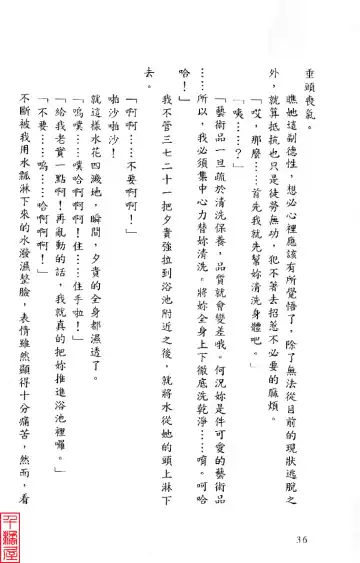 垂頭喪氣。
瞧她這副德性，想必心裡應該有所覺悟了，除了無法從目前的現狀逃脫之
外，就算抵抗也只是徒勞無功，犯不著去招惹不必要的麻煩。
「哎，那麼……首先我就先幫妳清洗身體吧。」
「咦……？」
「藝術品一旦疏於清洗保養，品質就會變差哦。何況妳是件可愛的藝術品
……所以，我必須集中心力替妳清洗。將妳全身上下徹底洗乾淨……唷。呵哈
哈！」
我不管三七二十一把夕貴強拉到浴池附近之後，就將水從她的頭上淋下
去。
「啊啊……不要啊啊！」
啪沙啪沙！
就這樣水花四濺地，瞬間，夕貴的全身都濕透了。
「嗚噗……噗哈啊啊！住……住手啦！」
「給我老實一點啊！再亂動的話，我就真的把妳推進浴池裡囉。」
「不要……嗚……哈啊啊啊！」
不斷被我用水瓢淋下來的水潑濕整臉，表情雖然顯得十分痛苦，然而，看
36